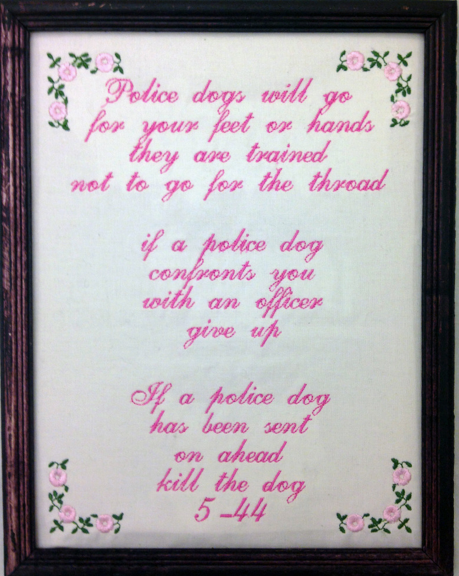 Police dogs will go
for your feet or hands
they are trained
not to go for the throad
if a police dog
confronts you
with an officer
give up
If a police dog
has been sent
on ahead
kill the dog
5-44